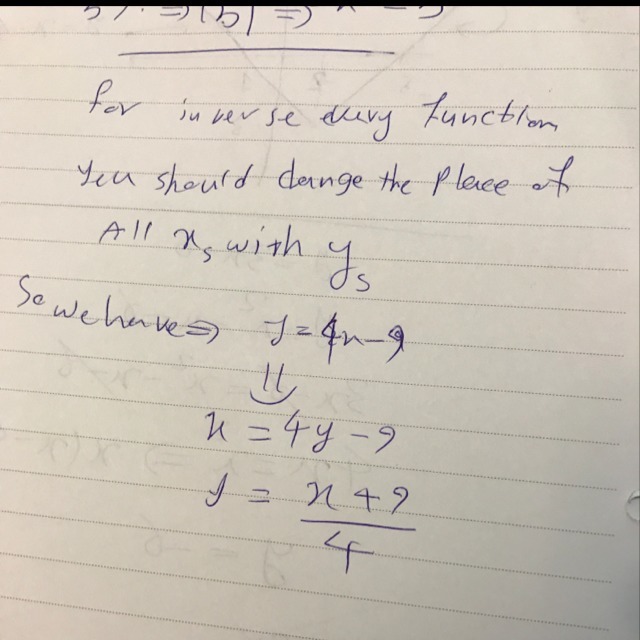 for inverse every function
you should change the place of
All xs with ys
So we have ⇒ y = 4x - 9
⇓
x = 4y - 9
y = x + 9
4